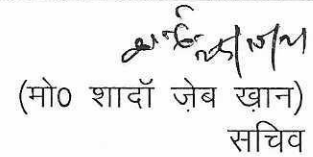 (मो0 शादाॅ ज़ेब ख़ान)
सचिव